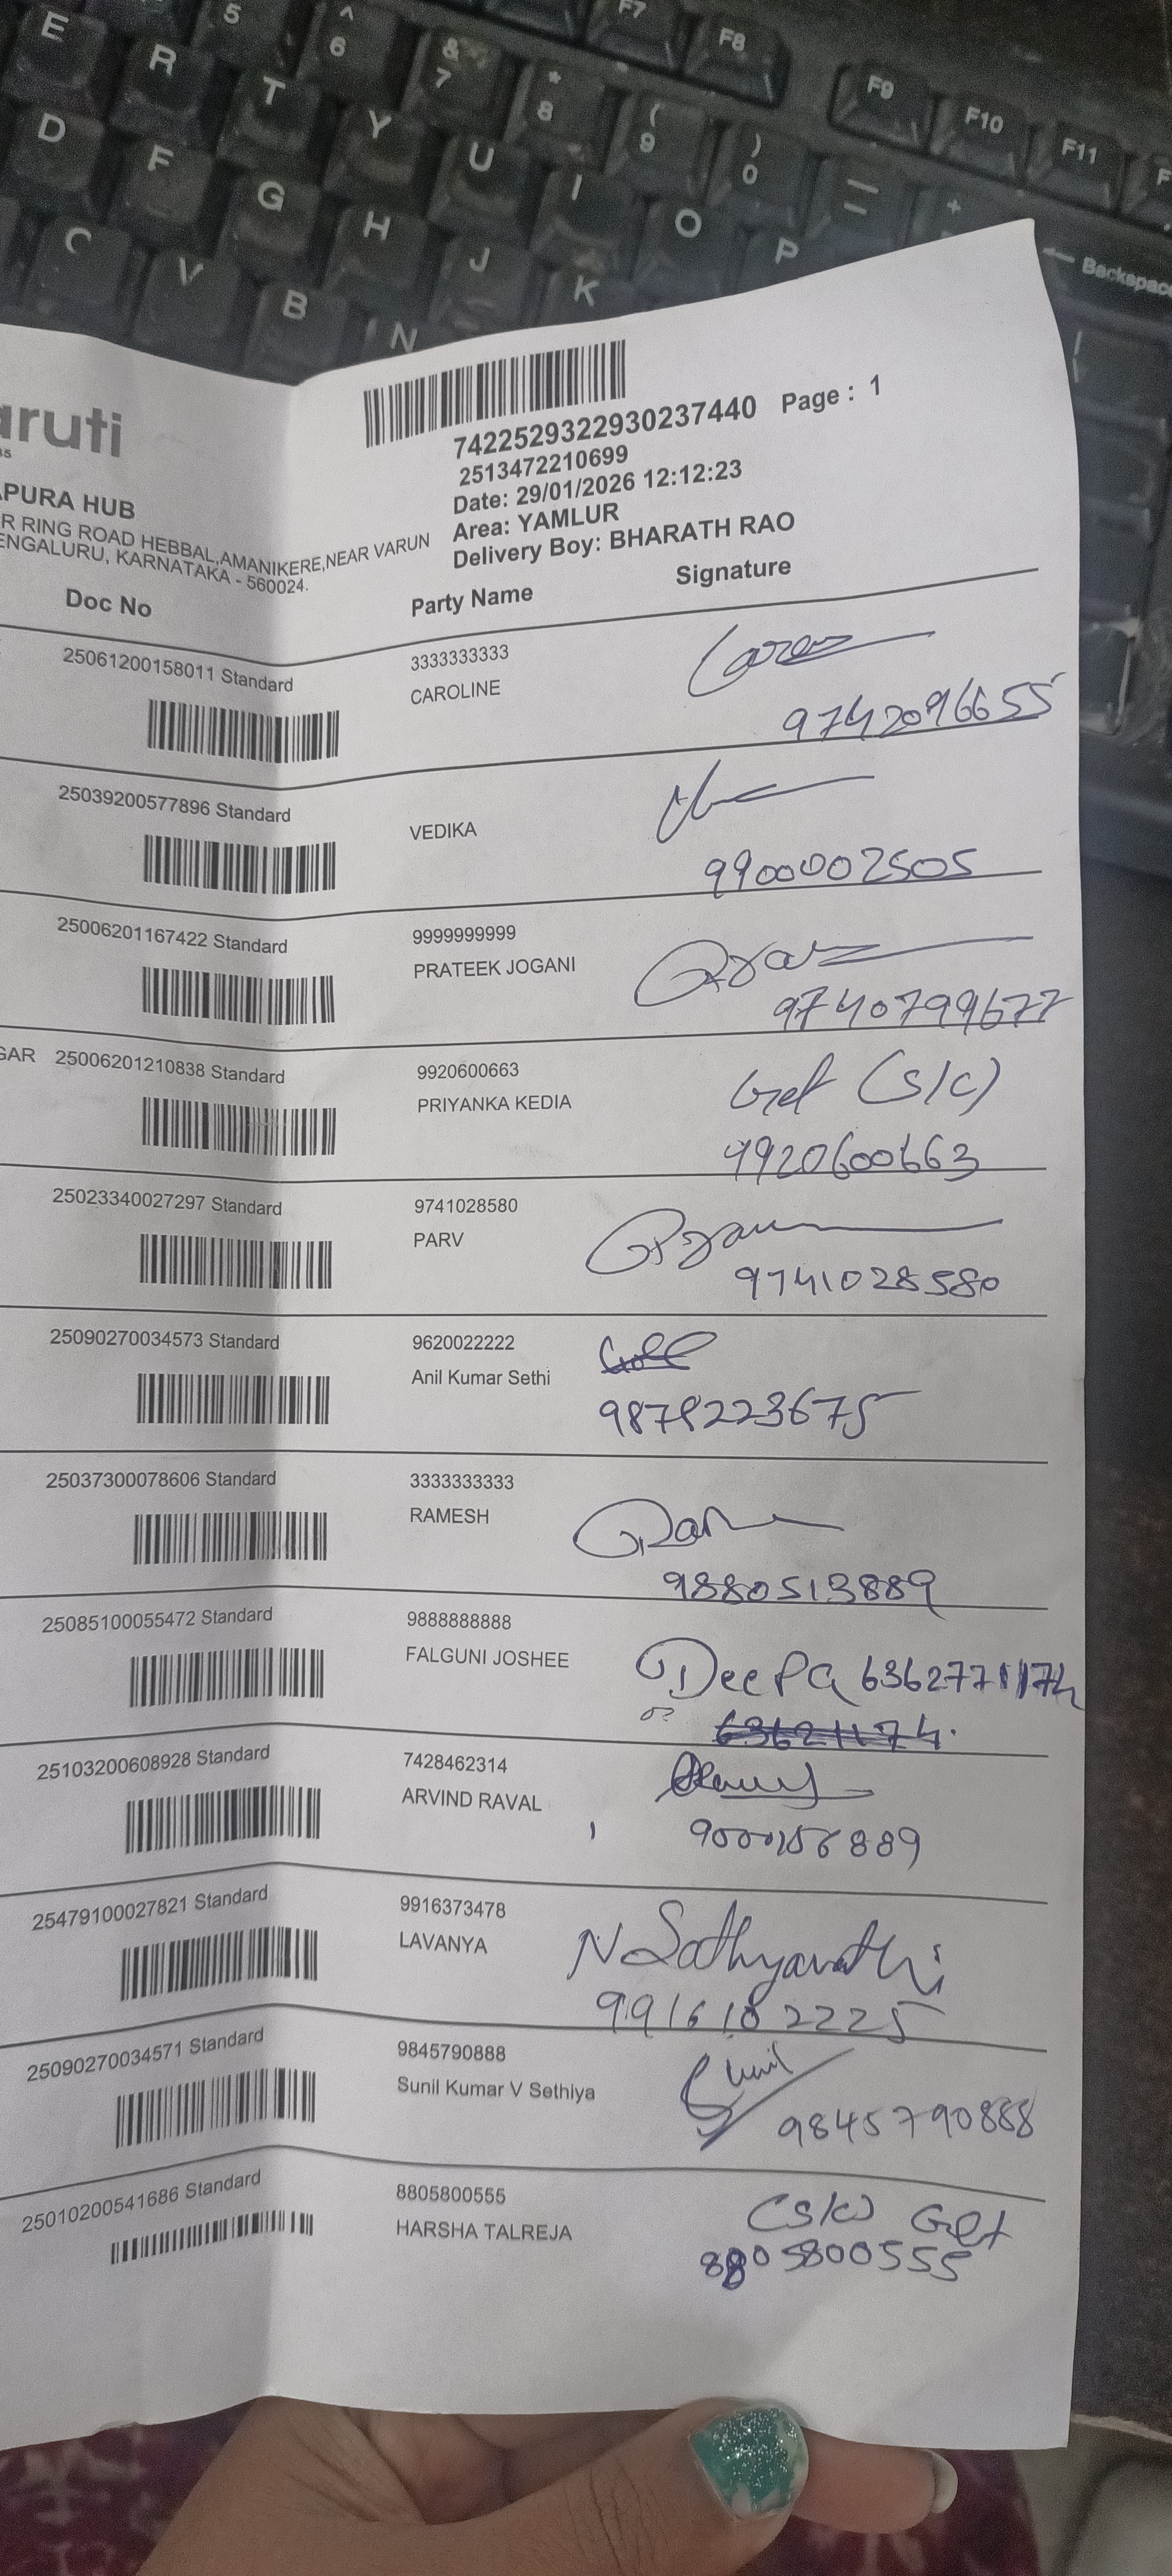 E R T Y U I O P
5 ^ 6 & 7 * 8 ( 9 ) 0
F7 F8 F9 F10 F11 F
D F G H J K
C V B N
← Backspace
aruti
APURA HUB
R RING ROAD HEBBAL,AMANIKERE,NEAR VARUN
ENGALURU, KARNATAKA - 560024.
7422529322930237440 Page : 1
2513472210699
Date: 29/01/2026 12:12:23
Area: YAMLUR
Delivery Boy: BHARATH RAO
Doc No Party Name Signature
25061200158011 Standard 3333333333
CAROLINE
9742096655
25039200577896 Standard
VEDIKA
9900002505
25006201167422 Standard 9999999999
PRATEEK JOGANI
9740799677
GAR 25006201210838 Standard 9920600663
PRIYANKA KEDIA Gef (S/C)
9920600663
25023340027297 Standard 9741028580
PARV
9741028580
25090270034573 Standard 9620022222
Anil Kumar Sethi
9878223675
25037300078606 Standard 3333333333
RAMESH
9880513889
25085100055472 Standard 9888888888
FALGUNI JOSHEE DeePa
25103200608928 Standard 7428462314
ARVIND RAVAL
25479100027821 Standard 9916373478
LAVANYA N Sathyavathi
9916102225
25090270034571 Standard 9845790888
Sunil Kumar V Sethiya Sunil
9845790888
250102005​41686 Standard 8805800555
HARSHA TALREJA Get
8805800555